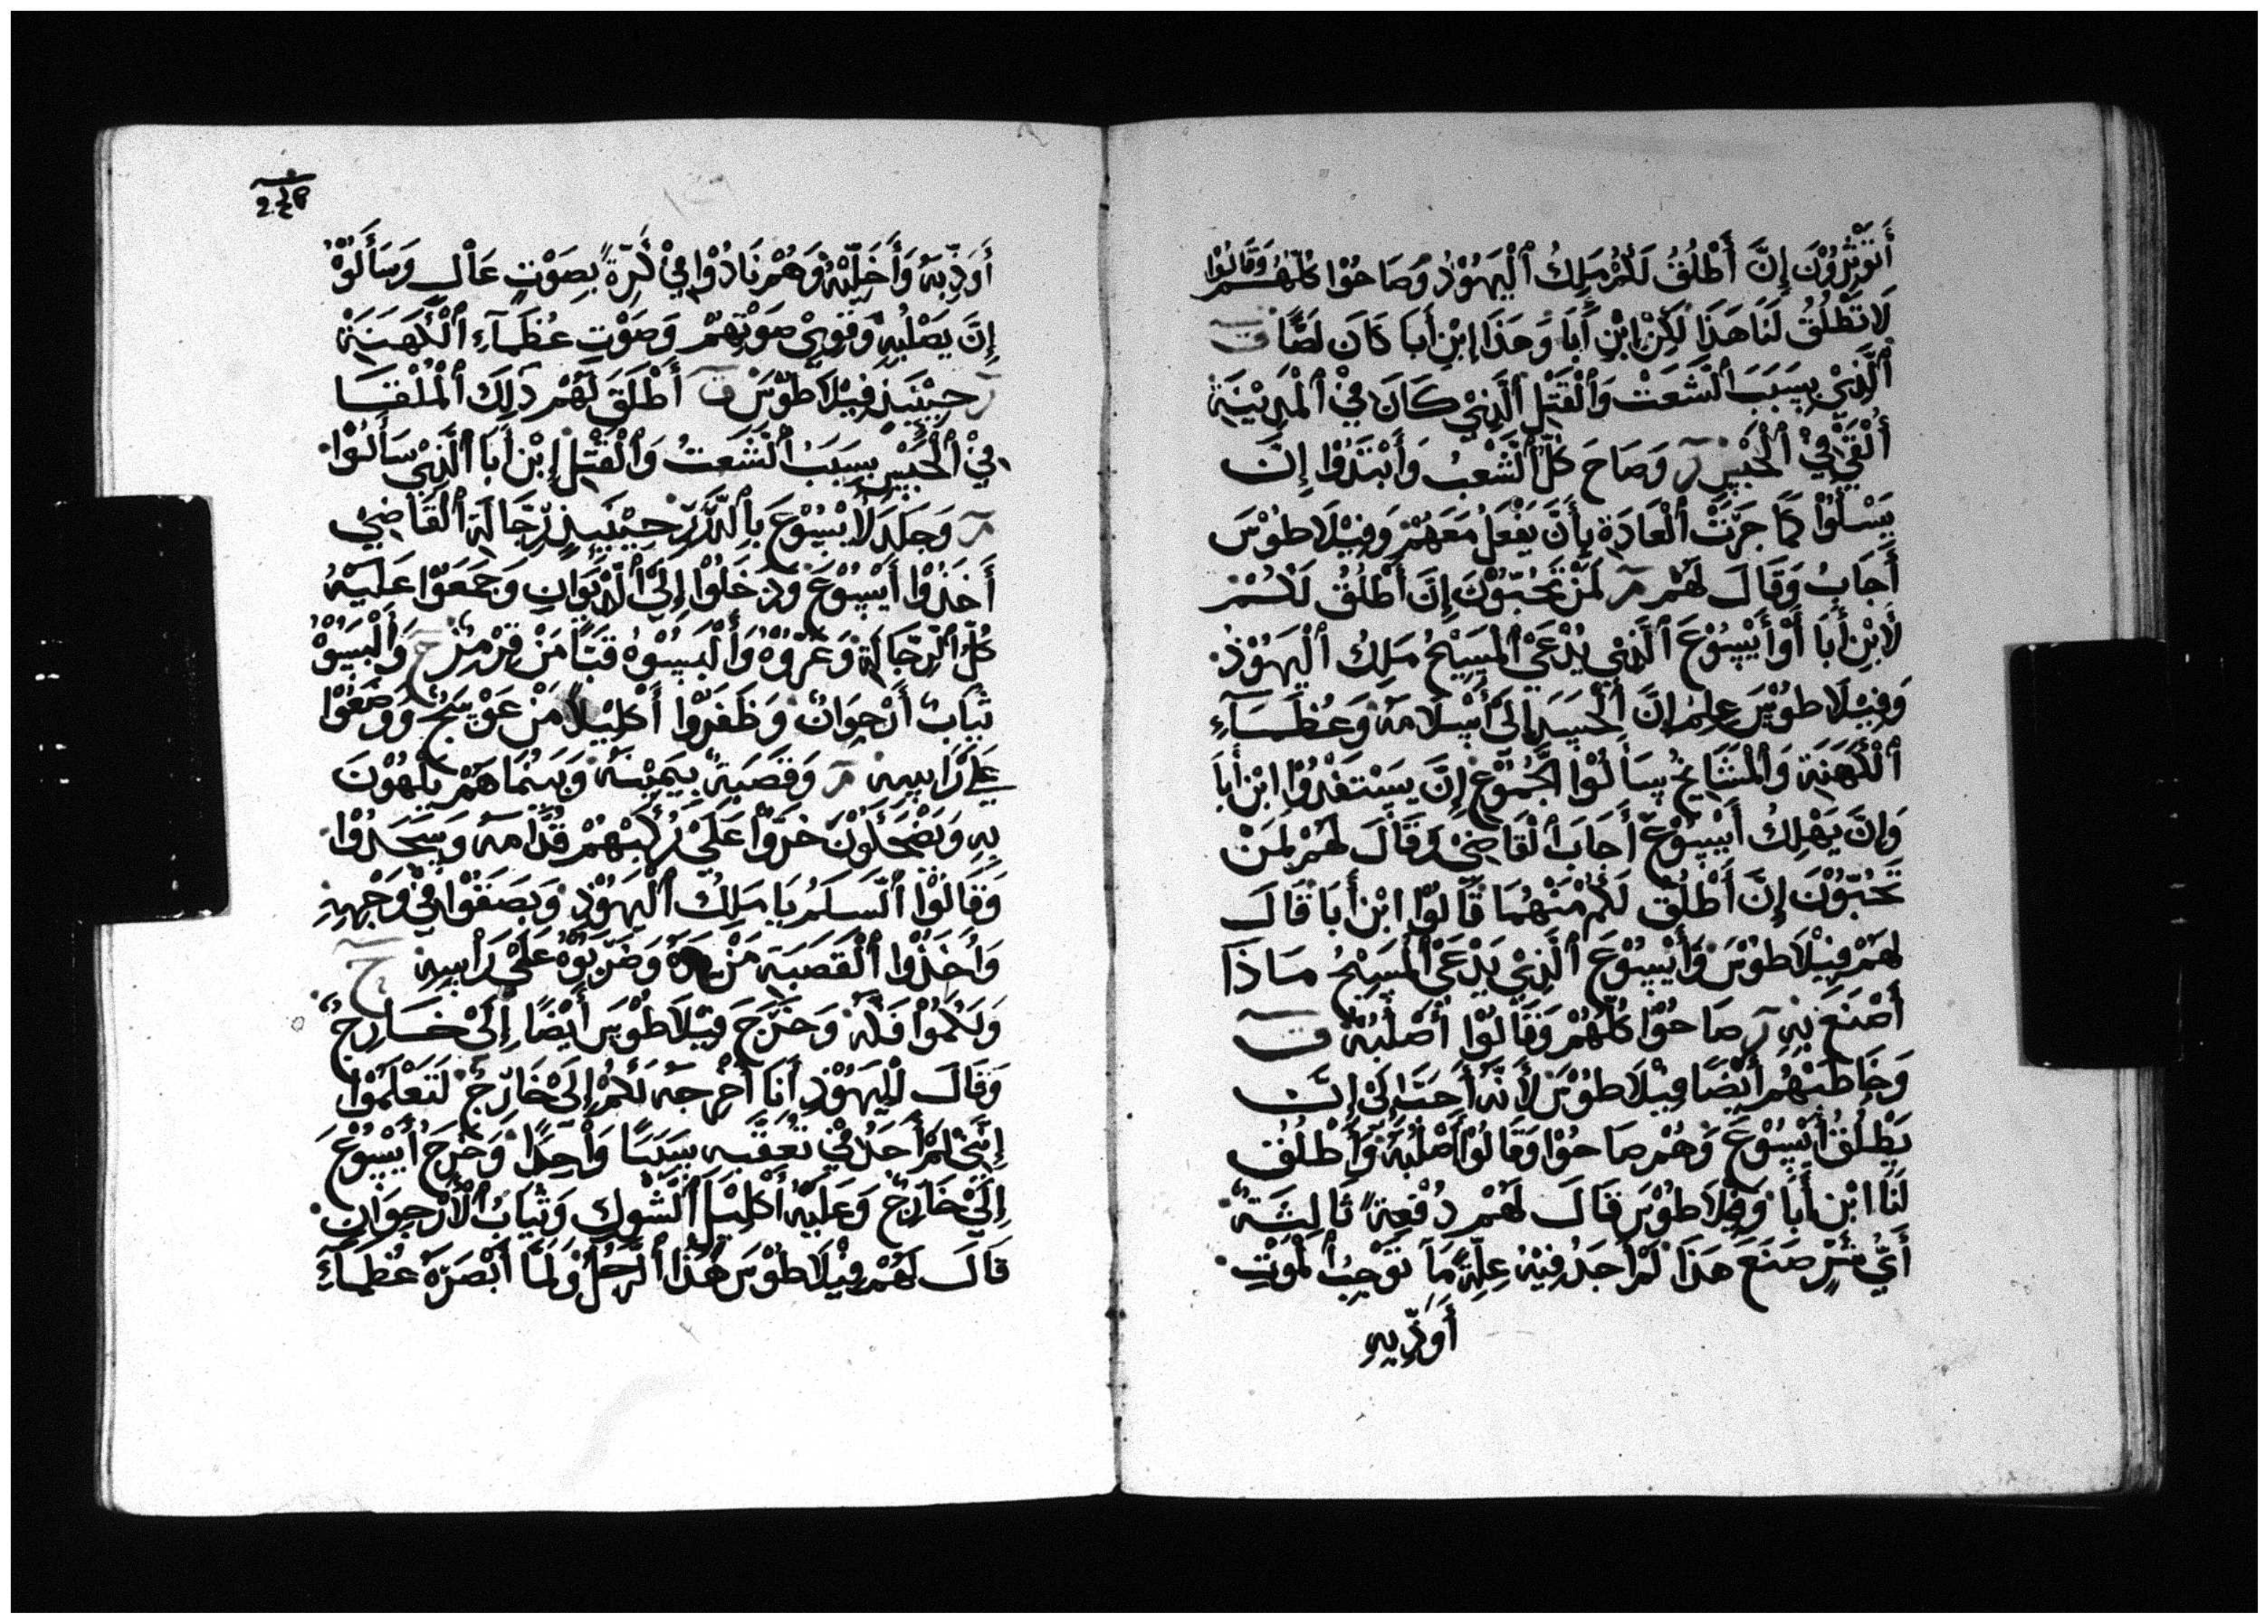 أَتُوْثِرُوْنَ إِنَّ أَطْلُقُ لَكُمْ مَلِكُ ٱلْيَهُوْدُ وَصَاحُوْا كُلُّهُمْ وَقَالُوْا
لَا تَطْلُقُ لَنَا هَذَا لَكِنْ إِبْنِ أَبَا وَهَذَا إِبْنِ أَبَا كَانَ لَصًّا ق
ٱلَّذِيْ بِسَبَبَ ٱلشَّعَتْ وَٱلْقَتِلِ ٱلَّذِيْ كَانَ فِيْ ٱلْمَدِيْنَةِ
أُلْقِيَ فِيْ ٱلْحَبْسِ ر وَصَاحَ كُلُّ ٱلشَّعْبُ وَأَبْتَدُوْا إِنَّ
يَسْلُوْا كَمَا جَرَتْ ٱلْعَادَةِ بِأَنَّ يَفْعَلُ مَعَهُمْ وَفِيْلَاطُوْسَ
أَجَابُ وَقَالَ لَهُمْ مر لَمَنْ تَحُبُّوْنَ إِنَّ أَطْلُقُ لَكُمْ
لَابْنِ أَبَا أَوْ أَيْسُوْعَ ٱلَّذِيْ يُدْعَى ٱلْمَسِيْحُ مَلِكُ ٱلْيَهُوْدُ
وَفِيْلَاطُوْسَ عِلِمُ إِنَّ ٱلْحَسَدِ إِلَى أَسْلَامَهُ وَعُظَمَآءِ
ٱلْكَهَنَةِ وَٱلْمَشَايِخُ سَأَلُوْا ٱلْجُمُوْعِ إِنَّ يَسْتَفْدُوْا ابْنِ أَبَا
وَإِنَّ يَهْلِكُ أَيْسُوْعَ أَجَابَ ٱلْقَاضِيْ وَقَالَ لَهُمْ لِمَنْ
تَحُبُّوْنَ إِنَّ أَطْلُقُ لَكُمْ مَنْهُمَا قَالُوْا ابْنِ أَبَا قَالَ
لَهُمْ فِيْلَاطُوْسَ وَأَيْسُوْعَ ٱلَّذِيْ يَدْعَى ٱلْمَسِيْحُ مَاذَا
أَصْنَعَ بِهِ ر صَاحُوْا كُلُّهُمْ وَقَالُوْا أَصْلُبُهُ ق
وَخَاطَبَهُمْ أَيْضًا فِيْلَاطُوْسَ لِأَنَّهُ أَحَتَا لِىْ إِنَّ
يَطْلُقُ أَيْسُوْعَ وَهُمْ صَاحُوْا وَقَالُوْا أَصْلُبُهُ وَأَطْلُقُ
لَنَا ابْنِ أَبَا وَفِيْلَاطُوْسَ قَالَ لَهُمْ دُفْعِةً ثَالِثَةً
أَيُّ شَرٍّ صَنَعَ هَذَا لَمْ أَجَدُ فِيْهُ عِلَّةً مَا تَوْجِبُ ٱلْمَوْتِ
أَوَدِّبِهِ
أَوَدِّبَهُ وَأَخَلِّيَهُ وَهُمْ نَادُوْا فِيْ كَرَّةً بِصَوْتٍ عَالٍ وَسَأَلُوْا
إِنَّ يَصْلُبِهِ وَقَوِيْ صَوْتِهِمْ وَصَوْتِ عُظَمَآءِ ٱلْكَهَنَةِ
ر حِيْنَيَذٍ فِيْلَاطُوْسَ ق أَطْلَقَ لَهُمْ ذَلِكَ ٱلْمُلْقَا
فِيْ ٱلْحَبْسِ بِسَبَبُ ٱلشَّعَتُ وَٱلْقَتْلِ إِبْنِ أَبَا ٱلَّذِيْ سَأَلُوْا
مر وَجَلَدَ لَأَيْسُوْعَ بِٱلدِّرَرِ حِيْنَيَذٍ رِجَّالَةِ ٱلْقَاضِيْ
أَخَذُوْا أَيْسُوْعَ وَدَخَلُوْا إِلَى ٱلْدِيْوَانِ وَجَمَعُوْا عَلَيْهُ
كُلُّ ٱلرِّجَّالَةِ وَعَرُّوْهُ وَأَلْبَسُوْهُ قَبًا مَنْ قِرْمِزٍ ح وَأَلْبَسُوْ
ثِيَابُ أَرْجِوَانُ وَظَفَرُوْا أَكْلِيْلًا مَنْ عَوْسَجُ وَوَضَعُوْا
عَلَى رَاسِهِ مر وَقَصَبَةً بِيَمِيْنِهُ وَبَيْنَمَا هُمْ يَلْهُوْنَ
بِهِ وَيَضْحَكُوْنَ خَرُّوْا عَلَى رُكَبْهُمْ قُدَّامَهُ وَسَجَدُوْا
وَقَالُوْا ٱلسَّلَمُ يَا مَلِكُ ٱلْيَهُوْدِ وَبَصَقُوْا فِيْ وَجْهِهِ
وَأَخَذُوْا ٱلْقَصَبَةِ مَنْ يَدَهُ وَضَرَبُوْهُ عَلَى رَأْسِهِ ح
وَخَرَّجَ فِيْلَاطُوْسَ أَيْضًا إِلَىْ خَارِجً
وَقَالَ لْلِيَهُوْدِ أَنَا أُخْرِجَهُ لَكُمْ إِلَىْ خَارِجً لَتَعْلَمُوْا
إِنَّنِيْ لَمْ أَجَدُ فِيْ تَعَقُّبِهِ سَبَبًا وَاْحِدًا وَخَرَجُ أَيْسُوْعَ
إِلَىْ خَارِجً وَعَلَيْهُ أَكْلِيْلَ ٱلشَّوْكِ وَثِيَابُ ٱلْأُرْجِوَانِ
قَالَ لَهُمْ فِيْلَاطُوْسَ هُذَا ٱلرَّجُلُ وَلَمَّا أَبْصَرَهُ عُظَمَآءِ